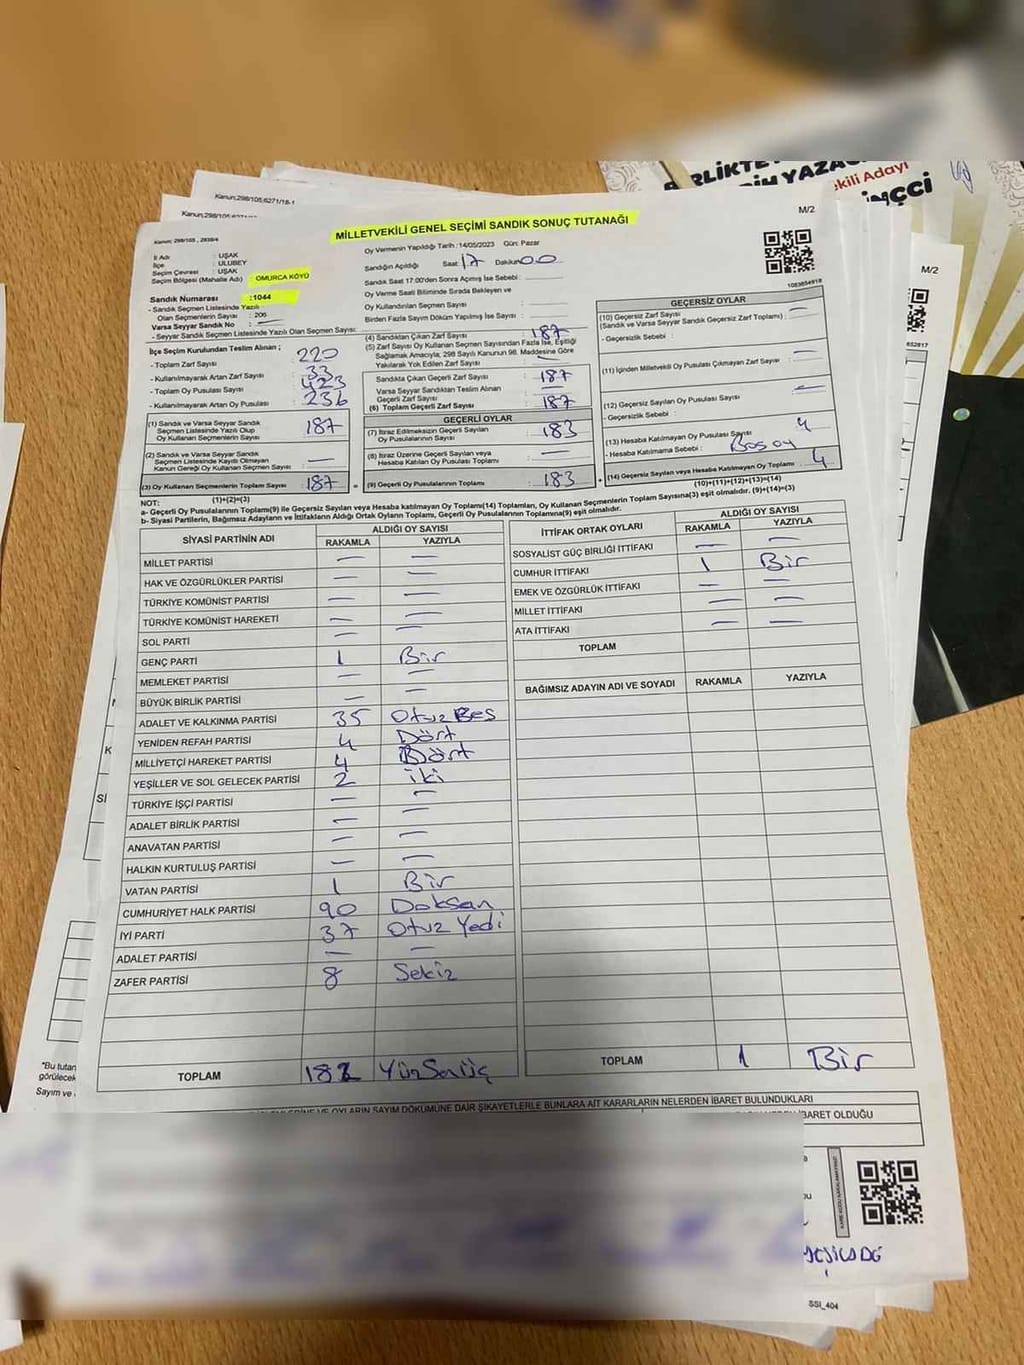 BİRLİKTE
YAZA
ekili Adayı
İNÇCİ
Kanun;298/105;6271/18-1
M/2
M/2
MİLLETVEKİLİ GENEL SEÇİMİ SANDIK SONUÇ TUTANAĞI
1083654818
İl Adı : UŞAK
İlçe : ULUBEY
Seçim Çevresi : UŞAK
Seçim Bölgesi (Mahalle Adı) OMURCA KÖYÜ
Sandık Numarası :1044
- Sandık Seçmen Listesinde Yazılı
Olan Seçmenlerin Sayısı : 206
Varsa Seyyar Sandık No : —
- Seyyar Sandık Seçmen Listesinde Yazılı Olan Seçmen Sayısı:
Oy Vermenin Yapıldığı Tarih :14/05/2023 Gün: Pazar
Sandığın Açıldığı Saat: 17 Dakika: 00
Sandık Saat 17:00'den Sonra Açılmış İse Sebebi :
Oy Verme Saati Bitiminde Sırada Bekleyen ve
Oy Kullandırılan Seçmen Sayısı :
Birden Fazla Sayım Döküm Yapılmış İse Sayısı :
İlçe Seçim Kurulundan Teslim Alınan ;
- Toplam Zarf Sayısı : 220
- Kullanılmayarak Artan Zarf Sayısı : 33
- Toplam Oy Pusulası Sayısı : 423
- Kullanılmayarak Artan Oy Pusulası : 236
(1) Sandık ve Varsa Seyyar Sandık
Seçmen Listesinde Yazılı Olup
Oy Kullanan Seçmenlerin Sayısı : 187
(2) Sandık ve Varsa Seyyar Sandık
Seçmen Listesinde Kayıtlı Olmayan
Kanun Gereği Oy Kullanan Seçmen Sayısı : —
(3) Oy Kullanan Seçmenlerin Toplam Sayısı : 187
(1)+(2)=(3)
(4) Sandıktan Çıkan Zarf Sayısı : 187
(5) Zarf Sayısı Oy Kullanan Seçmen Sayısından Fazla İse, Eşitliği
Sağlamak Amacıyla; 298 Sayılı Kanunun 98. Maddesine Göre
Yakılarak Yok Edilen Zarf Sayısı : —
Sandıkta Çıkan Geçerli Zarf Sayısı : 187
Varsa Seyyar Sandıktan Teslim Alınan
Geçerli Zarf Sayısı : —
(6) Toplam Geçerli Zarf Sayısı : 187
GEÇERLİ OYLAR
(7) İtiraz Edilmeksizin Geçerli Sayılan
Oy Pusulalarının Sayısı : 183
(8) İtiraz Üzerine Geçerli Sayılan veya
Hesaba Katılan Oy Pusulası Toplamı : —
= (9) Geçerli Oy Pusulalarının Toplamı : 183
GEÇERSİZ OYLAR
(10) Geçersiz Zarf Sayısı : —
(Sandık ve Varsa Seyyar Sandık Geçersiz Zarf Toplamı)
- Geçersizlik Sebebi :
(11) İçinden Milletvekili Oy Pusulası Çıkmayan Zarf Sayısı : —
(12) Geçersiz Sayılan Oy Pusulası Sayısı : —
- Geçersizlik Sebebi :
(13) Hesaba Katılmayan Oy Pusulası Sayısı : 4
- Hesaba Katılmama Sebebi : Boş oy
+ (14) Geçersiz Sayılan veya Hesaba Katılmayan Oy Toplamı : 4
(10)+(11)+(12)+(13)=(14)
NOT:
a- Geçerli Oy Pusulalarının Toplamı(9) ile Geçersiz Sayılan veya Hesaba katılmayan Oy Toplamı(14) Toplamları, Oy Kullanan Seçmenlerin Toplam Sayısına(3) eşit olmalıdır. (9)+(14)=(3)
b- Siyasi Partilerin, Bağımsız Adayların ve İttifakların Aldığı Ortak Oyların Toplamı, Geçerli Oy Pusulalarının Toplamına(9) eşit olmalıdır.
SİYASİ PARTİNİN ADI ALDIĞI OY SAYISI
RAKAMLA YAZIYLA
MİLLET PARTİSİ — —
HAK VE ÖZGÜRLÜKLER PARTİSİ — —
TÜRKİYE KOMÜNİST PARTİSİ — —
TÜRKİYE KOMÜNİST HAREKETİ — —
SOL PARTİ — —
GENÇ PARTİ 1 Bir
MEMLEKET PARTİSİ — —
BÜYÜK BİRLİK PARTİSİ — —
ADALET VE KALKINMA PARTİSİ 35 Otuz Beş
YENİDEN REFAH PARTİSİ 4 Dört
MİLLİYETÇİ HAREKET PARTİSİ 4 Dört
YEŞİLLER VE SOL GELECEK PARTİSİ 2 iki
TÜRKİYE İŞÇİ PARTİSİ — —
ADALET BİRLİK PARTİSİ — —
ANAVATAN PARTİSİ — —
HALKIN KURTULUŞ PARTİSİ — —
VATAN PARTİSİ 1 Bir
CUMHURİYET HALK PARTİSİ 90 Doksan
İYİ PARTİ 37 Otuz Yedi
ADALET PARTİSİ — —
ZAFER PARTİSİ 8 Sekiz
TOPLAM
İTTİFAK ORTAK OYLARI ALDIĞI OY SAYISI
RAKAMLA YAZIYLA
SOSYALİST GÜÇ BİRLİĞİ İTTİFAKI — —
CUMHUR İTTİFAKI 1 Bir
EMEK VE ÖZGÜRLÜK İTTİFAKI — —
MİLLET İTTİFAKI — —
ATA İTTİFAKI — —
TOPLAM
BAĞIMSIZ ADAYIN ADI VE SOYADI RAKAMLA YAZIYLA
TOPLAM 1 Bir
OYLARIN SAYIM DÖKÜMÜNE DAİR ŞİKAYETLERLE BUNLARA AİT KARARLARIN NELERDEN İBARET BULUNDUKLARI
İBARET OLDUĞU
"Bu tutan
görülecek
Sayım ve
SSİ_404